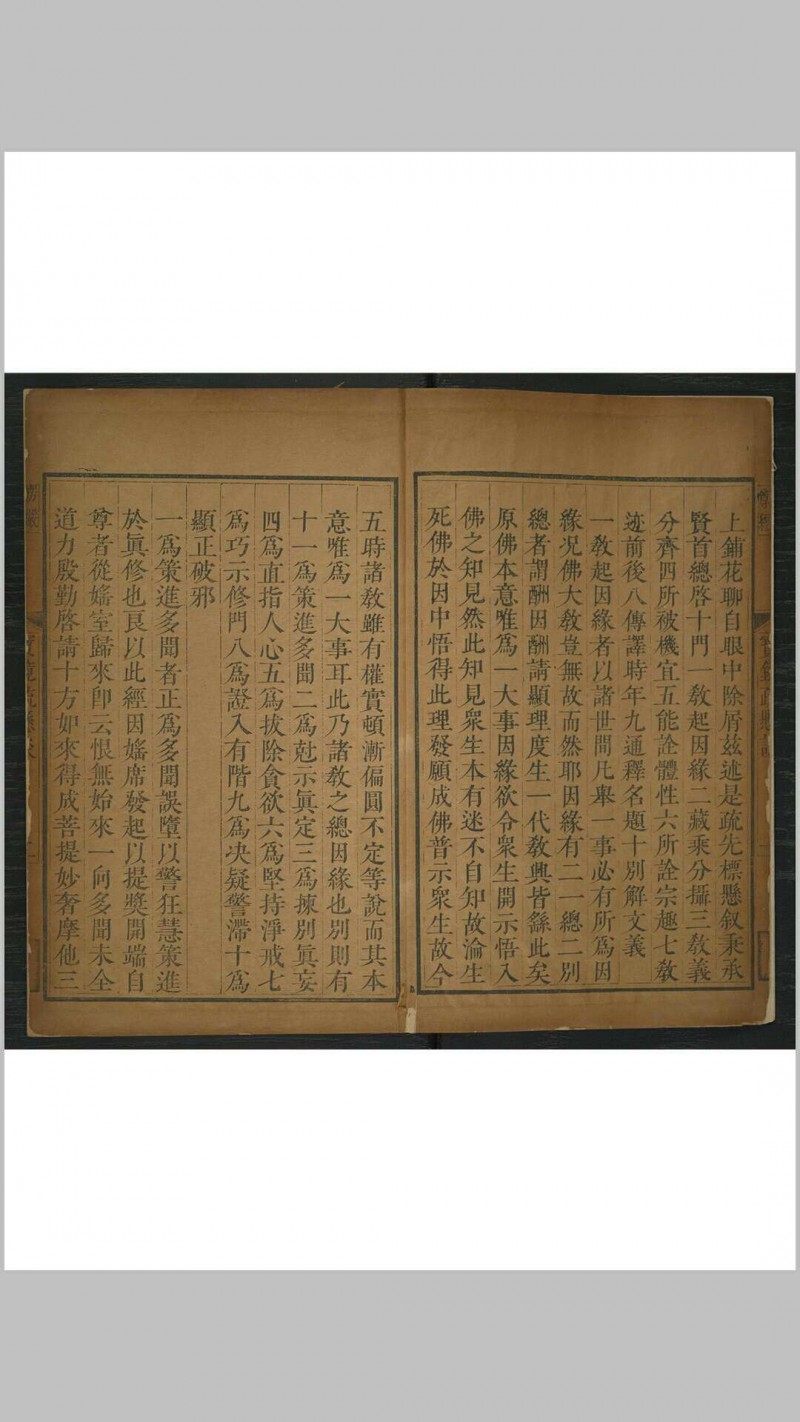 上鋪花聊自眼中除屑玆述是疏先標懸敘秉承
賢首總啓十門一教起因緣二藏乘分攝三教義
分齊四所被機宜五能詮體性六所詮宗趣七教
迹前後八傳譯時年九通釋名題十別解文義
一教起因緣者以諸世間凡舉一事必有所爲因
緣况佛大教豈無故而然耶因緣有二一總二別
總者謂酬因酬請顯理度生一代教興皆繇此矣
原佛本意唯爲一大事因緣欲令衆生開示悟入
佛之知見然此知見衆生本有迷不自知故淪生
死佛於因中悟得此理發願成佛普示衆生故今
五時諸教雖有權實頓漸偏圓不定等說而其本
意唯爲一大事耳此乃諸教之總因緣也別則有
十一爲策進多聞二爲尅示眞定三爲揀別眞妄
四爲直指人心五爲拔除貪欲六爲堅持淨戒七
爲巧示修門八爲證入有階九爲决疑警滯十爲
顯正破邪
一爲策進多聞者正爲多聞誤墮以警狂慧策進
於眞修也良以此經因婬席發起以提奬開端自
尊者從婬室歸來卽云恨無始來一向多聞未全
道力殷勤啓請十方如來得成菩提妙奢摩他三